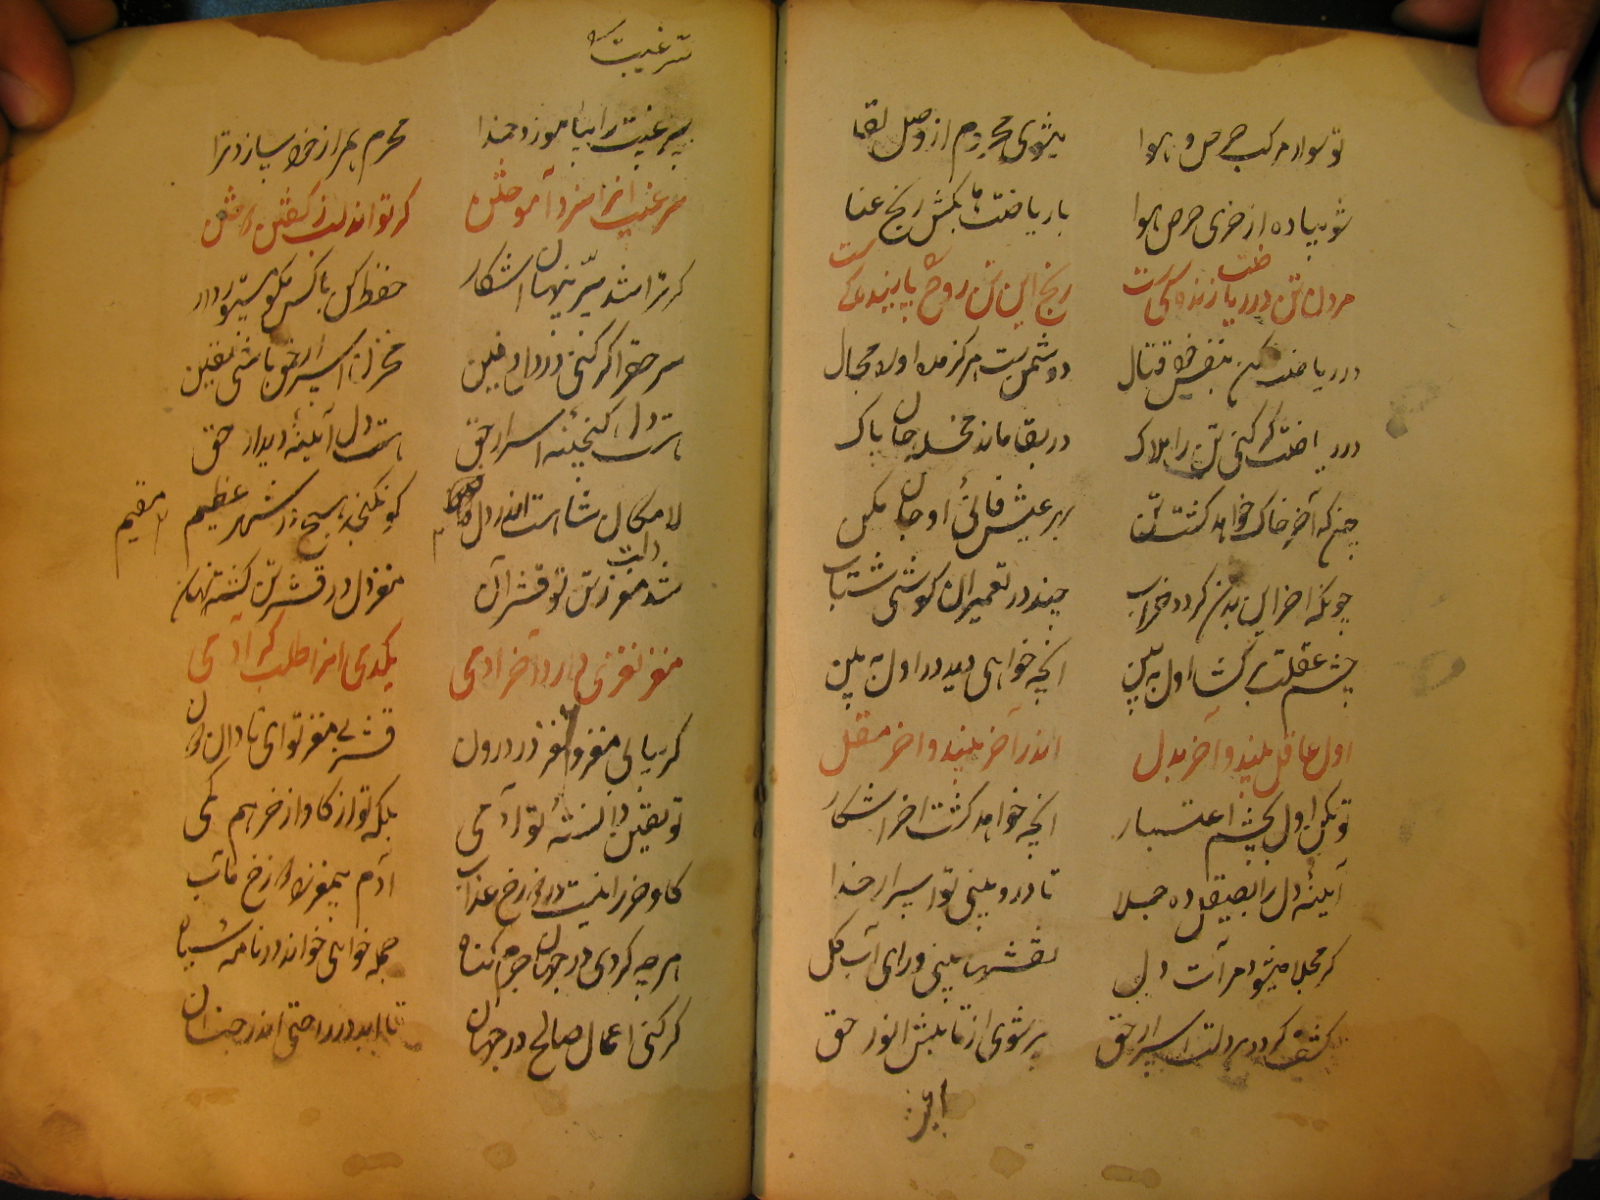 تو سوار مرکب حرص و هوا میشوی محروم از وصل لقا
شو پیاده از خری حرص هوا با ریاضتها بکش رنج عنا
مردن تن در ریاضت زندگیست رنج این تن روح پایندگیست
در ریاضت کن بنفس خود قتال دشمن است هرگز مده او را مجال
در ریاضت گر کنی تن را هلاک در بقا ماند جان پاک
چونکه آخر خاک خواهد گشت تن بهر عیش فانئ او جان مکن
چونکه آخر این بدن گردد خراب چند در تعمیر آن کوشی شتاب
چشم عقلت برگشا اول ببین آنچه خواهی دید در اول ببین
اول عاقل ببیند و آخر بدل اندر آخر بیند و آخر مقل
تو بکن اول بچشم اعتبار آنچه خواهد گشت آخر اشکار
آینهٔ دل را بصیقل ده جلا تا درو بینی تو اسرار خدا
گر مجلا میشود مرآت دل نقشها بینی ورای آب گل
کشف گردد بر دلت اسرار حق پر شوی از تابش انور حق
سرغیبت
سر غیبت را بیاموزد خدا محرم همراز خود سازد ترا
سر غیب آنرا سزد آموختن کو تواند لب ز گفتن دوختن
گر ترا شد سر پنهان اشکار حفظ کن با کس مگو
سر حق را گر کنی در دل دفین مخزن اسرار حق باشی یقین
هست دل گنجینهٔ اسرار حق هست دل آینهٔ دیدار حق
لامکان شا است اندر دل کو نگنجد هیچ در شهر عظیم مقیم
شد دلت مغز تن تو قشر آن مغز دل در قشر تن گشته نهان
مغز نغزی دارد آخر آدمی یکدمی آنرا طلب گر آدمی
گر نیابی مغز و نغز در درون قشر بی مغز تو ای نادان دون
تو یقین دانسته‌ٔ تو آدمی بلکه تو از گاو از خر هم کمی
گاو خر را نیست در دوزخ عذاب آدم بیمغز را دوزخ مآب
هر چه کردی در جهان جرم گناه جمله خواهی خواند در نامه سیاه
گر کنی اعمال صالح در جهان تا ابد در راحتی اندر جنان